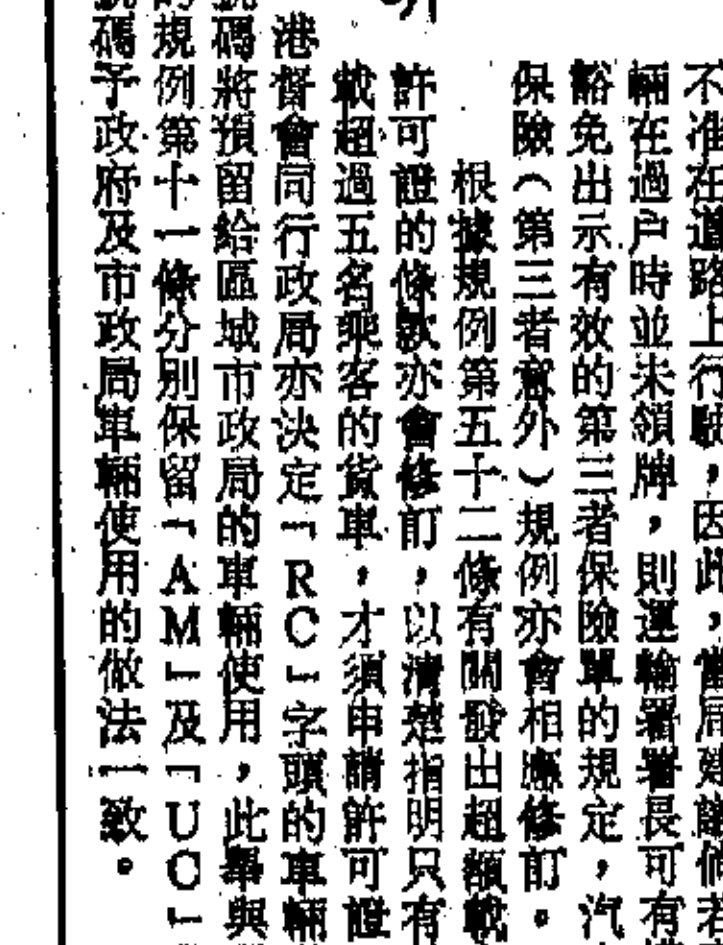 不准在道路上行駛，因此，當局建議倘若
輛在過户時並未領牌，則運輸署署長可有
豁免出示有效的第三者保險單的規定，汽
保險（第三者意外）規例亦會相應修訂。
根據規例第五十二條有關發出超額載
許可證的條款亦會修訂，以清楚指明只有
載超過五名乘客的貨車，才須申請許可證
港督會同行政局亦決定「RC」字頭的車輛
碼將預留給區域市政局的車輛使用，此舉與
規例第十一條分別保留「AM」及「UC」
碼予政府及市政局車輛使用的做法一致。